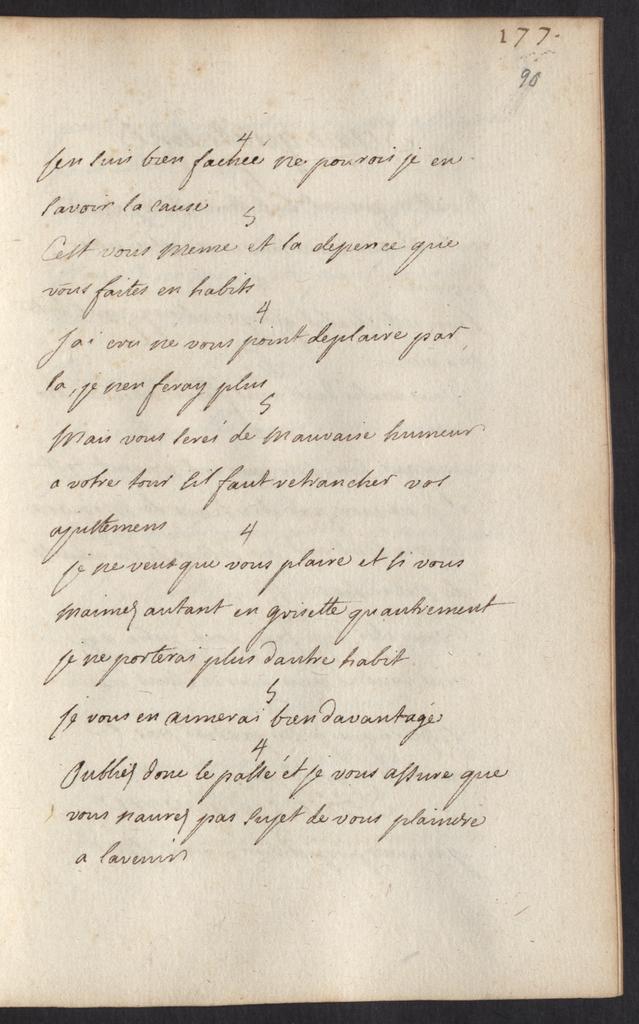 177.
90
4
jen suis bien fachée ne pourois je en
savoir la cause
5
Cest vous meme et la depence que
vous faites en habits
4
Jai cru ne vous point deplaire par
la, je nen feray plus
5
Mais vous serés de mauvaise humeur
a votre tour sil faut retrancher vos
ajustemens
4
je ne veux que vous plaire et si vous
maimés autant en grisette quautrement
je ne porterai plus dautre habit
5
je vous en aimerai bien davantage
4
Oubliés donc le passé et je vous assure que
vous naurés pas sujet de vous plaindre
a lavenir